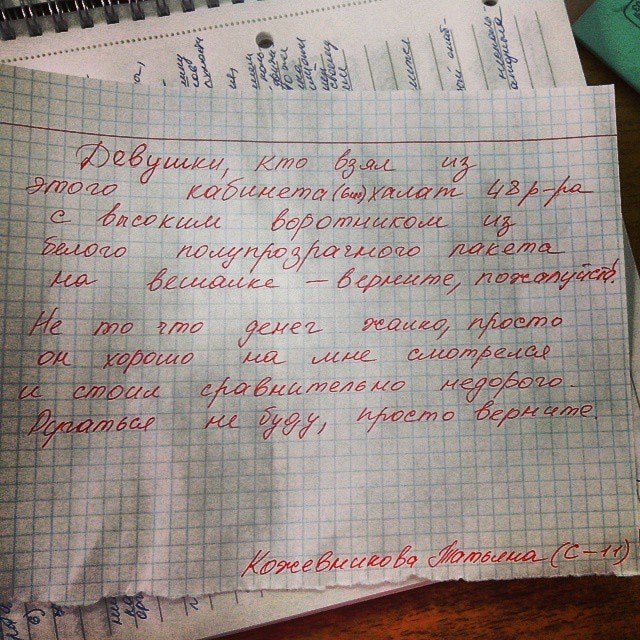 Девушки, кто взял из
этого кабинета халат 48 р-ра
с высоким воротником из
белого полупрозрачного пакета
на вешалке – верните, пожалуйста!
Не то что денег жалко, просто
он хорошо на мне смотрелся
и стоил сравнительно недорого.
Ругаться не буду, просто верните.
Кожевникова Татьяна (С-11)